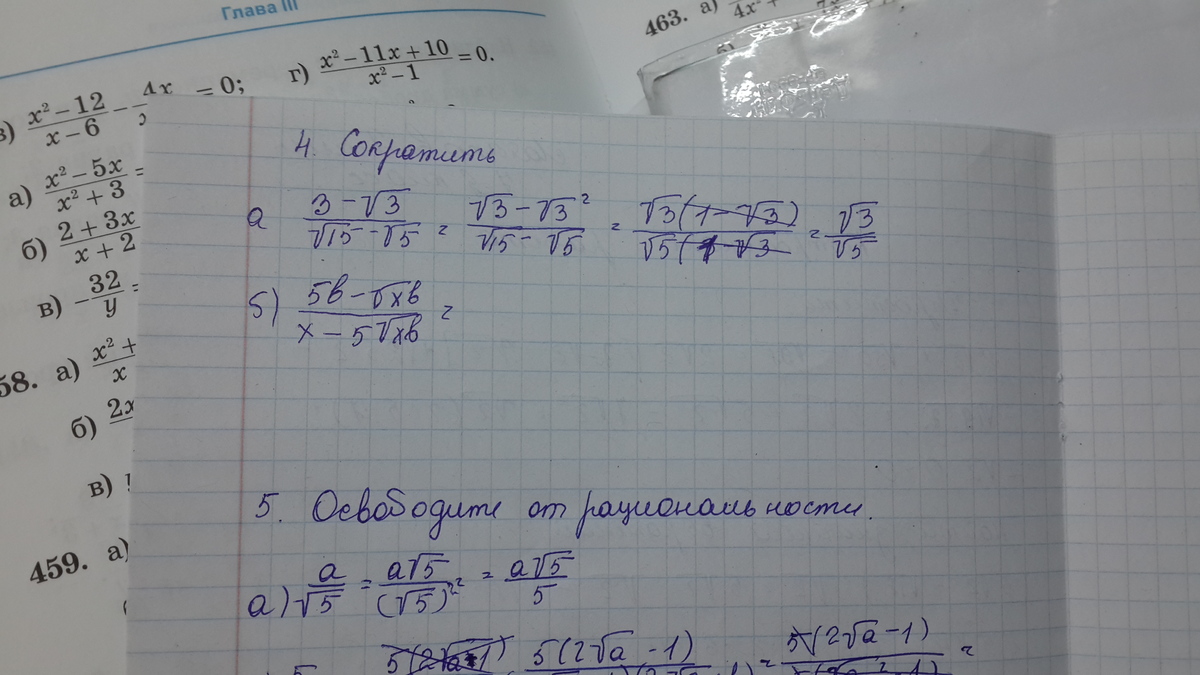 Глава III
463. а)
в) (x² − 12)/(x − 6) − 4x = 0; г) (x² − 11x + 10)/(x² − 1) = 0.
а) (x² − 5x)/(x² + 3) =
б) (2 + 3x)/(x + 2)
в) −32/y =
58. а) x² + / x
б) 2x
в)
459. а)
4. Сократить
а (3 − √3)/(√15 − √5) = (√3 − √3²)/(√15 − √5) = √3(1 − √3)/√5(1 − √3 = √3/√5
б) (5в − √хв)/(х − 5√хв) =
5. Освободите от рациональности.
а) a/√5 = a√5/(√5)² = a√5/5
5 5(2√a − 1) 5(2√a − 1) = 5(2√a − 1) =